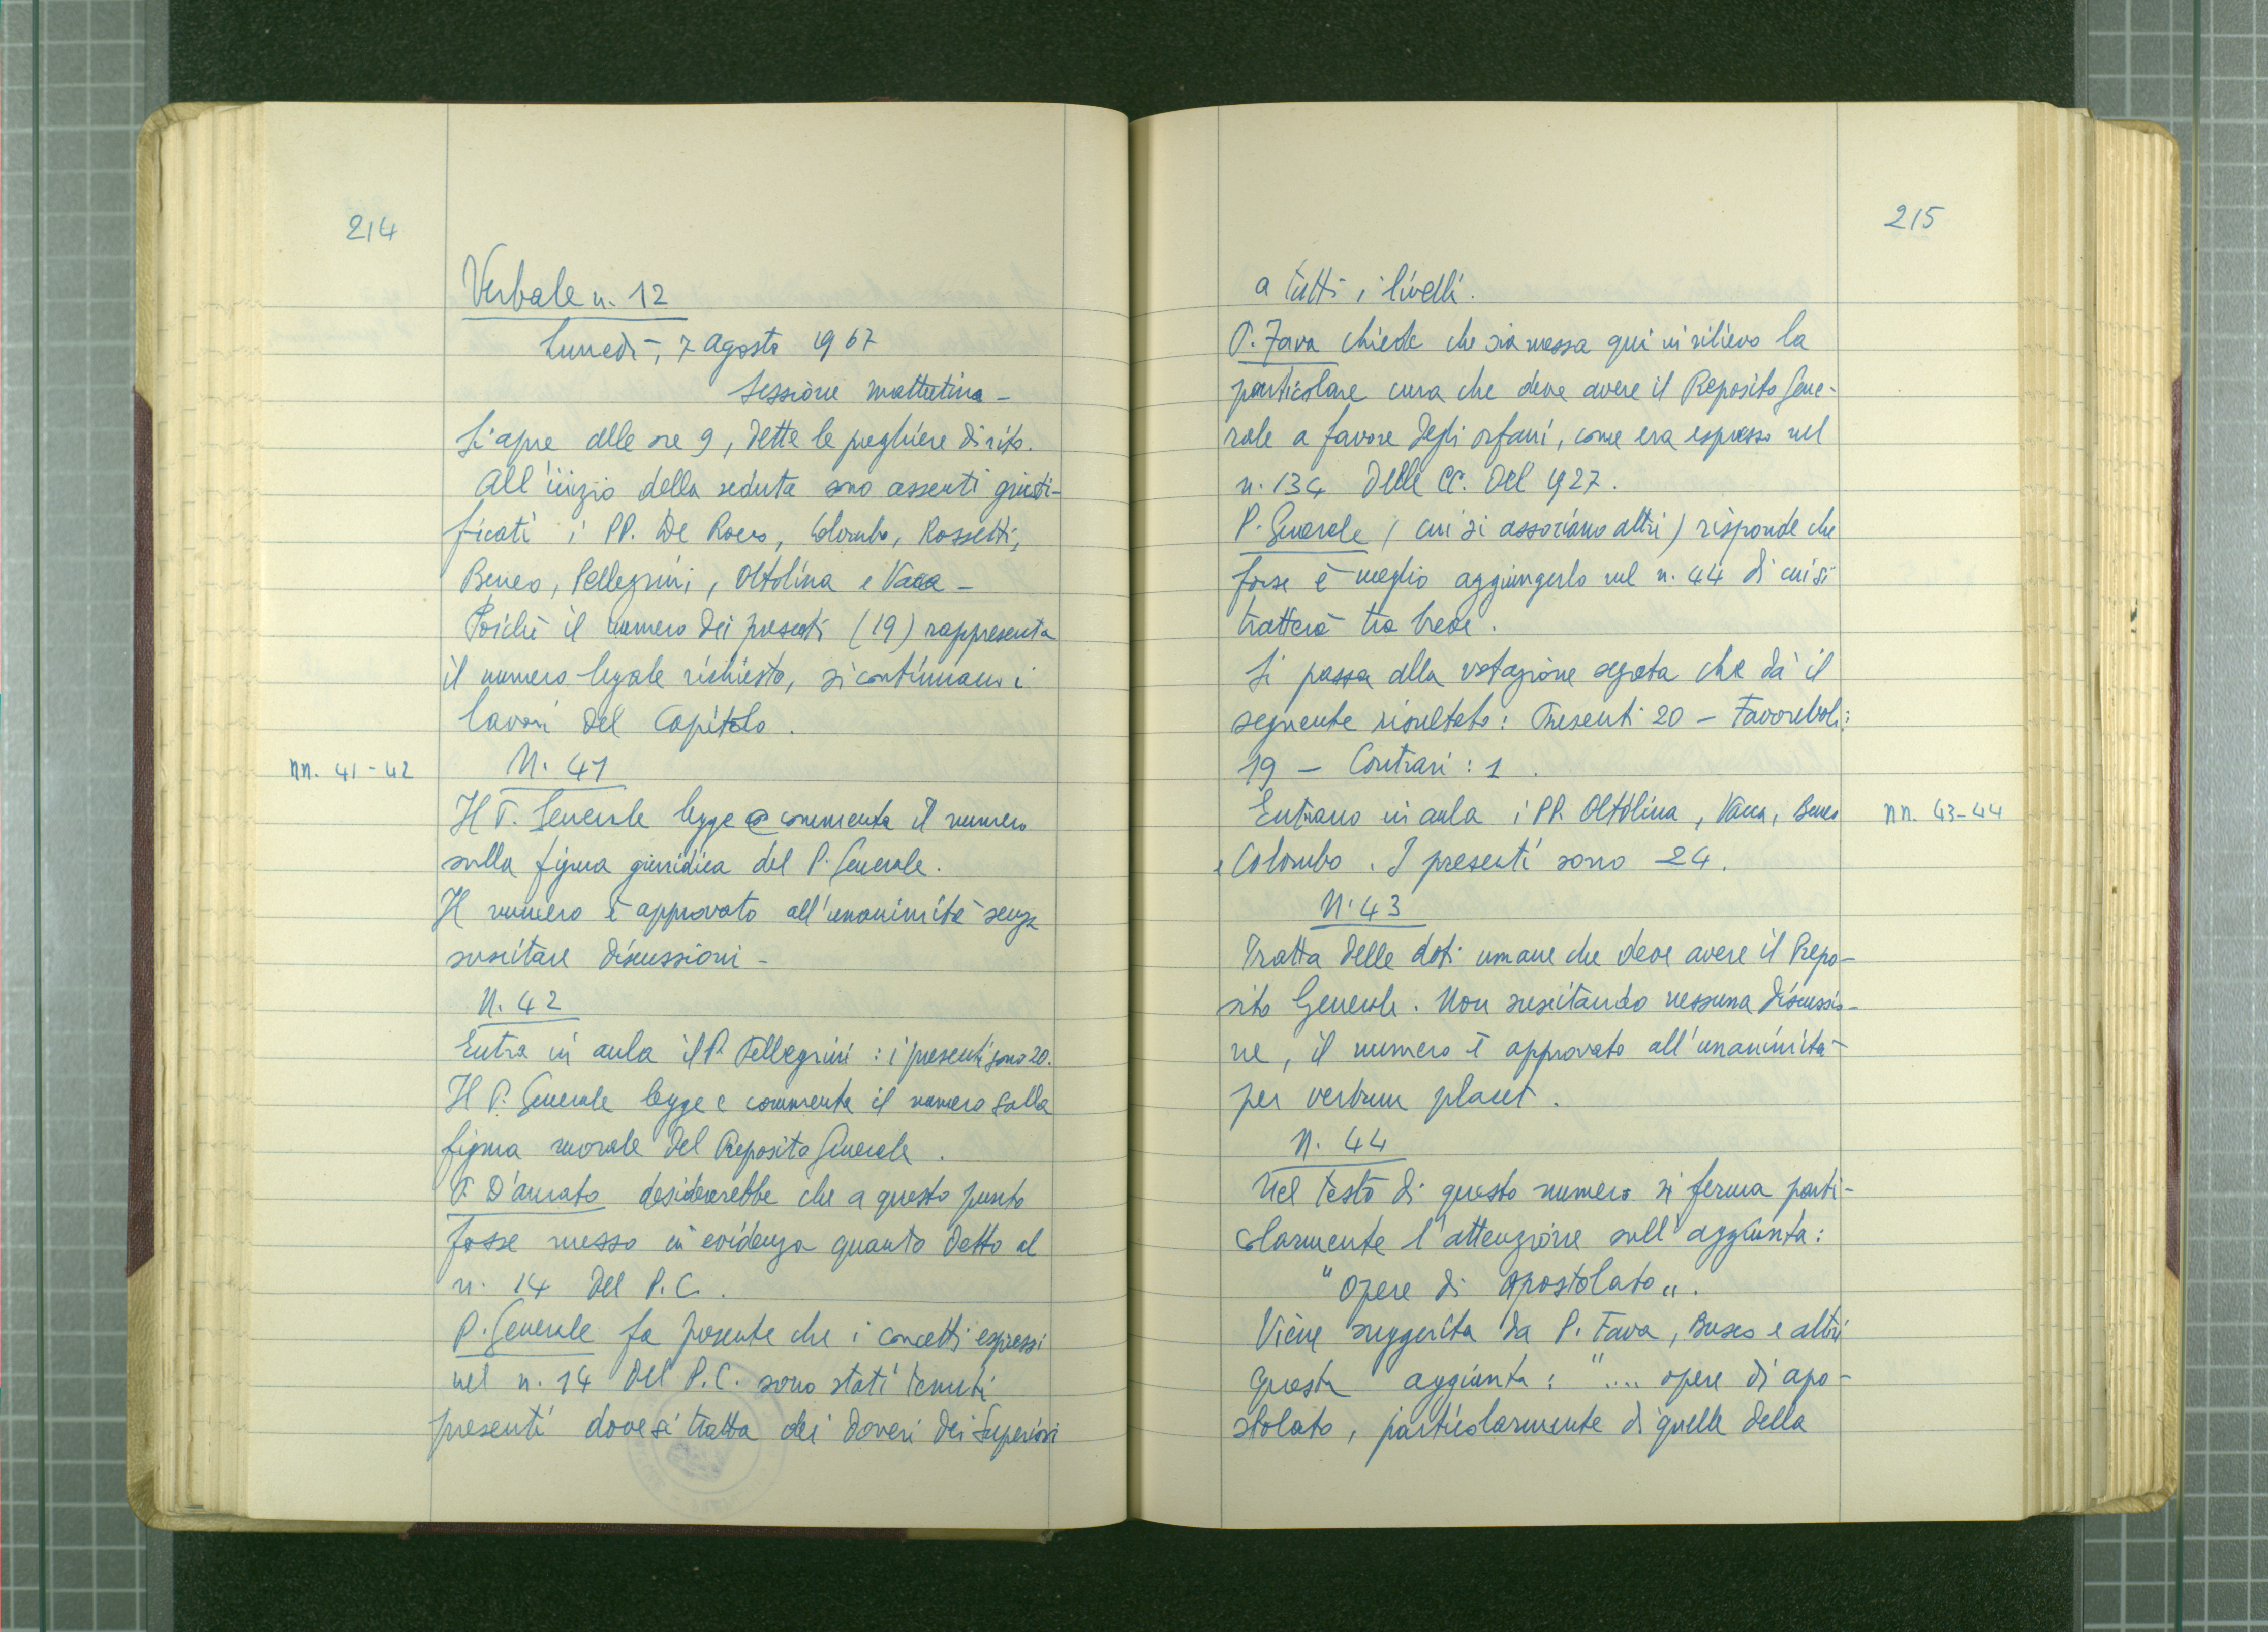 214
Verbale n. 12
Lunedì, 7 Agosto 1967
Sessione mattutina -
Si apre alle ore 9, dette le preghiere di rito.
All'inizio della seduta sono assenti giusti-
ficati i PP. De Rocco, Colombo, Rossetti,
Beneo, Pellegrini, Oltolina e Vacca -
Poichè il numero dei presenti (19) rappresenta
il numero legale richiesto, si continuano i
lavori del Capitolo.
nn. 41-42
N. 41
Il P. Generale legge e commenta il numero
sulla figura giuridica del P. Generale.
Il numero è approvato all'unanimità senza
suscitare discussioni -
N. 42
Entra in aula il P. Pellegrini : i presenti sono 20.
Il P. Generale legge e commenta il numero sulla
figura morale del Preposito Generale.
P. D'Amato desidererebbe che a questo punto
fosse messo in evidenza quanto detto al
n. 14 del P.C.
P. Generale fa presente che i concetti espressi
nel n. 14 del P.C. sono stati tenuti
presenti dove si tratta dei doveri dei Superiori
215
a tutti i livelli.
P. Fava chiede che sia messa qui in rilievo la
particolare cura che deve avere il Preposito Gene-
rale a favore degli orfani, come era espresso nel
n. 134 delle CC. del 1927.
P. Generale (cui si associano altri) risponde che
forse è meglio aggiungerlo nel n. 44 di cui si
tratterà tra breve.
Si passa alla votazione segreta che dà il
seguente risultato: Presenti 20 - Favorevoli:
19 - Contrari : 1.
Entrano in aula i PP. Oltolina, Vacca, Beneo
e Colombo. I presenti sono 24.
nn. 43-44
N. 43
Tratta delle doti umane che deve avere il Prepo-
sito Generale. Non suscitando nessuna discussio-
ne, il numero è approvato all'unanimità
per verbum placet.
N. 44
Nel testo di questo numero si ferma parti-
colarmente l'attenzione sull'aggiunta:
"Opere di apostolato".
Viene suggerita da P. Fava, Busco e altri
questa aggiunta : ".... opere di apo-
stolato, particolarmente di quelle della